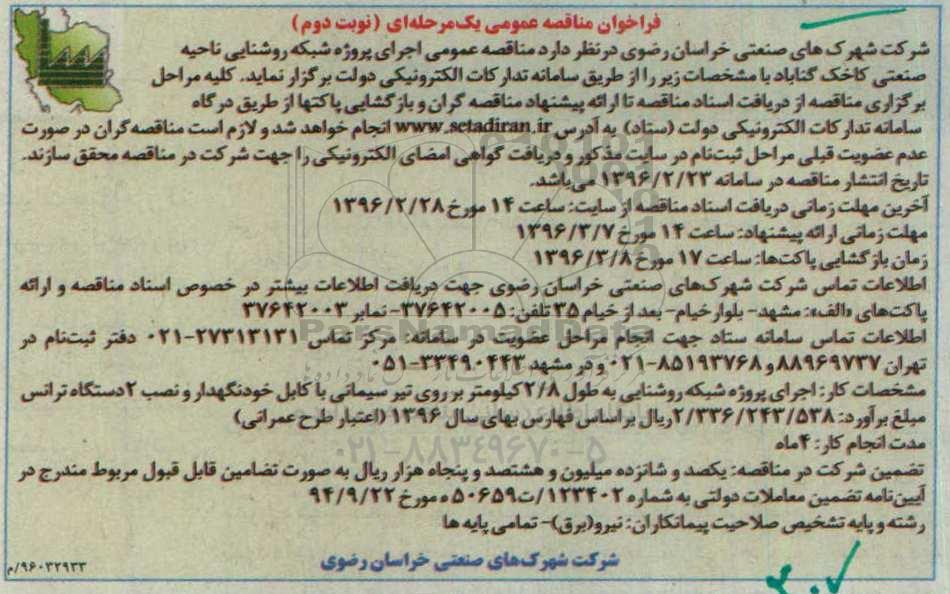 فراخوان مناقصه عمومی یک‌مرحله‌ای (نوبت دوم)
شرکت شهرک های صنعتی خراسان رضوی در نظر دارد مناقصه عمومی اجرای پروژه شبکه روشنایی ناحیه
صنعتی کاخک گناباد با مشخصات زیر را از طریق سامانه تدارکات الکترونیکی دولت برگزار نماید. کلیه مراحل
برگزاری مناقصه از دریافت اسناد مناقصه تا ارائه پیشنهاد مناقصه گران و بازگشایی پاکتها از طریق درگاه
سامانه تدارکات الکترونیکی دولت (ستاد) به آدرس www.setadiran.ir انجام خواهد شد و لازم است مناقصه‌گران در صورت
عدم عضویت قبلی مراحل ثبت‌نام در سایت مذکور و دریافت گواهی امضای الکترونیکی را جهت شرکت در مناقصه محقق سازند.
تاریخ انتشار مناقصه در سامانه ۱۳۹۶/۲/۲۳ می‌باشد.
آخرین مهلت زمانی دریافت اسناد مناقصه از سایت: ساعت ۱۴ مورخ ۱۳۹۶/۲/۲۸
مهلت زمانی ارائه پیشنهاد: ساعت ۱۴ مورخ ۱۳۹۶/۳/۷
زمان بازگشایی پاکت‌ها: ساعت ۱۷ مورخ ۱۳۹۶/۳/۸
اطلاعات تماس شرکت شهرک‌های صنعتی خراسان رضوی جهت دریافت اطلاعات بیشتر در خصوص اسناد مناقصه و ارائه
پاکت‌های «الف»: مشهد- بلوار خیام- بعد از خیام ۳۵ تلفن: ۳۷۶۴۲۰۰۵- نمابر ۳۷۶۴۲۰۰۳
اطلاعات تماس سامانه ستاد جهت انجام مراحل عضویت در سامانه: مرکز تماس ۲۷۳۱۳۱۳۱-۰۲۱ دفتر ثبت‌نام در
تهران ۸۸۹۶۹۷۳۷ و ۸۵۱۹۳۷۶۸-۰۲۱ و در مشهد ۳۳۴۹۰۴۴۳-۰۵۱
مشخصات کار: اجرای پروژه شبکه روشنایی به طول ۲/۸ کیلومتر بر روی تیر سیمانی با کابل خودنگهدار و نصب ۲ دستگاه ترانس
مبلغ برآورد: ۲/۳۳۶/۲۴۳/۵۳۸ ریال براساس فهارس بهای سال ۱۳۹۶ (اعتبار طرح عمرانی)
مدت انجام کار: ۴ ماه
تضمین شرکت در مناقصه: یکصد و شانزده میلیون و هشتصد و پنجاه هزار ریال به صورت تضامین قابل قبول مربوط مندرج در
آیین‌نامه تضمین معاملات دولتی به شماره ۱۲۳۴۰۲/ت۵۰۶۵۹ ه مورخ ۹۴/۹/۲۲
رشته و پایه تشخیص صلاحیت پیمانکاران: نیرو(برق)- تمامی پایه ها
شرکت شهرک‌های صنعتی خراسان رضوی
۹۶۰۳۲۹۳۳/م
ParsNamadData
۰۲۱-۸۸۳۴۹۶۷۰-۵